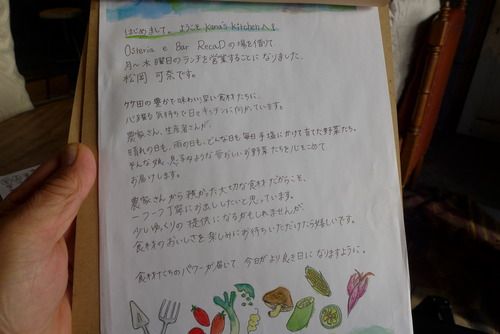 はじめまして、ようこそ Kana's Kitchenへ!
Osteria e Bar RecaDの場を借りて
月〜水曜日のランチを営業することになりました、
松岡 可奈です。
の豊かで味わい深い食材たちに、
心踊る気持ちで日々キッチンに向かっています。
農家さん、生産者さんが
晴れの日も、雨の日も、どんな日も毎日手塩にかけて育てた野菜たち。
そんな娘、息子のような愛おしいお野菜たちを心をこめて
お届けします。
農家さんから預かった大切な食材だからこそ、
一つ一つ丁寧にお出ししたいと思っています。
少しゆっくりの提供になるかもしれませんが、
食材のおいしさを楽しみにお待ちいただけたら嬉しいです。
食材たちのパワーが届いて、今日がより良き日になりますように。